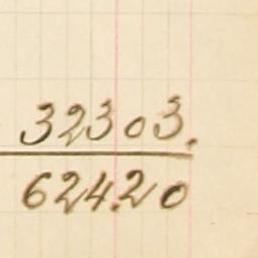 32303.
624.20